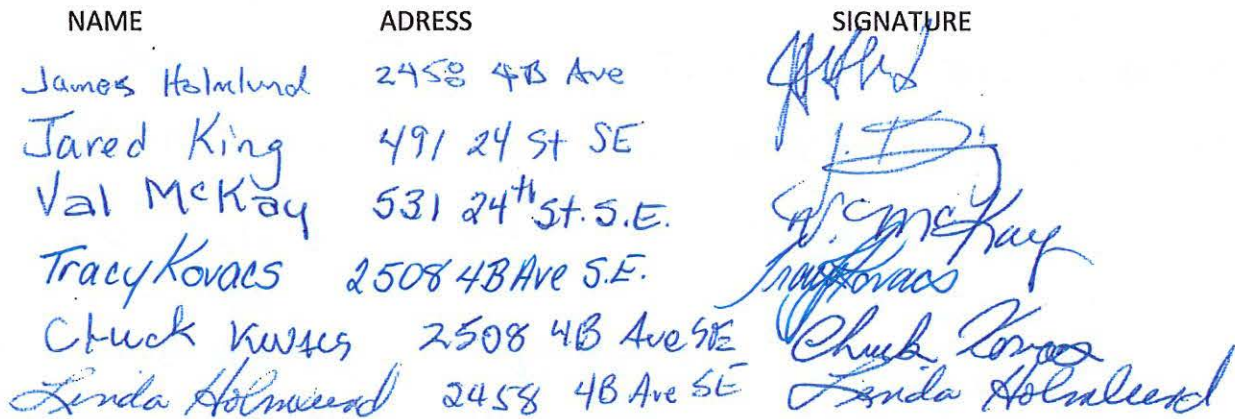 NAME ADRESS SIGNATURE
James Holmlund 2458 4B Ave
Jared King 491 24 St SE J. King
Val McKay 531 24th St. S.E. V. McKay
Tracy Kovacs 2508 4B Ave S.E. Tracy Kovacs
Chuck Kovacs 2508 4B Ave SE Chuck Kovacs
Linda Holmlund 2458 4B Ave SE Linda Holmlund